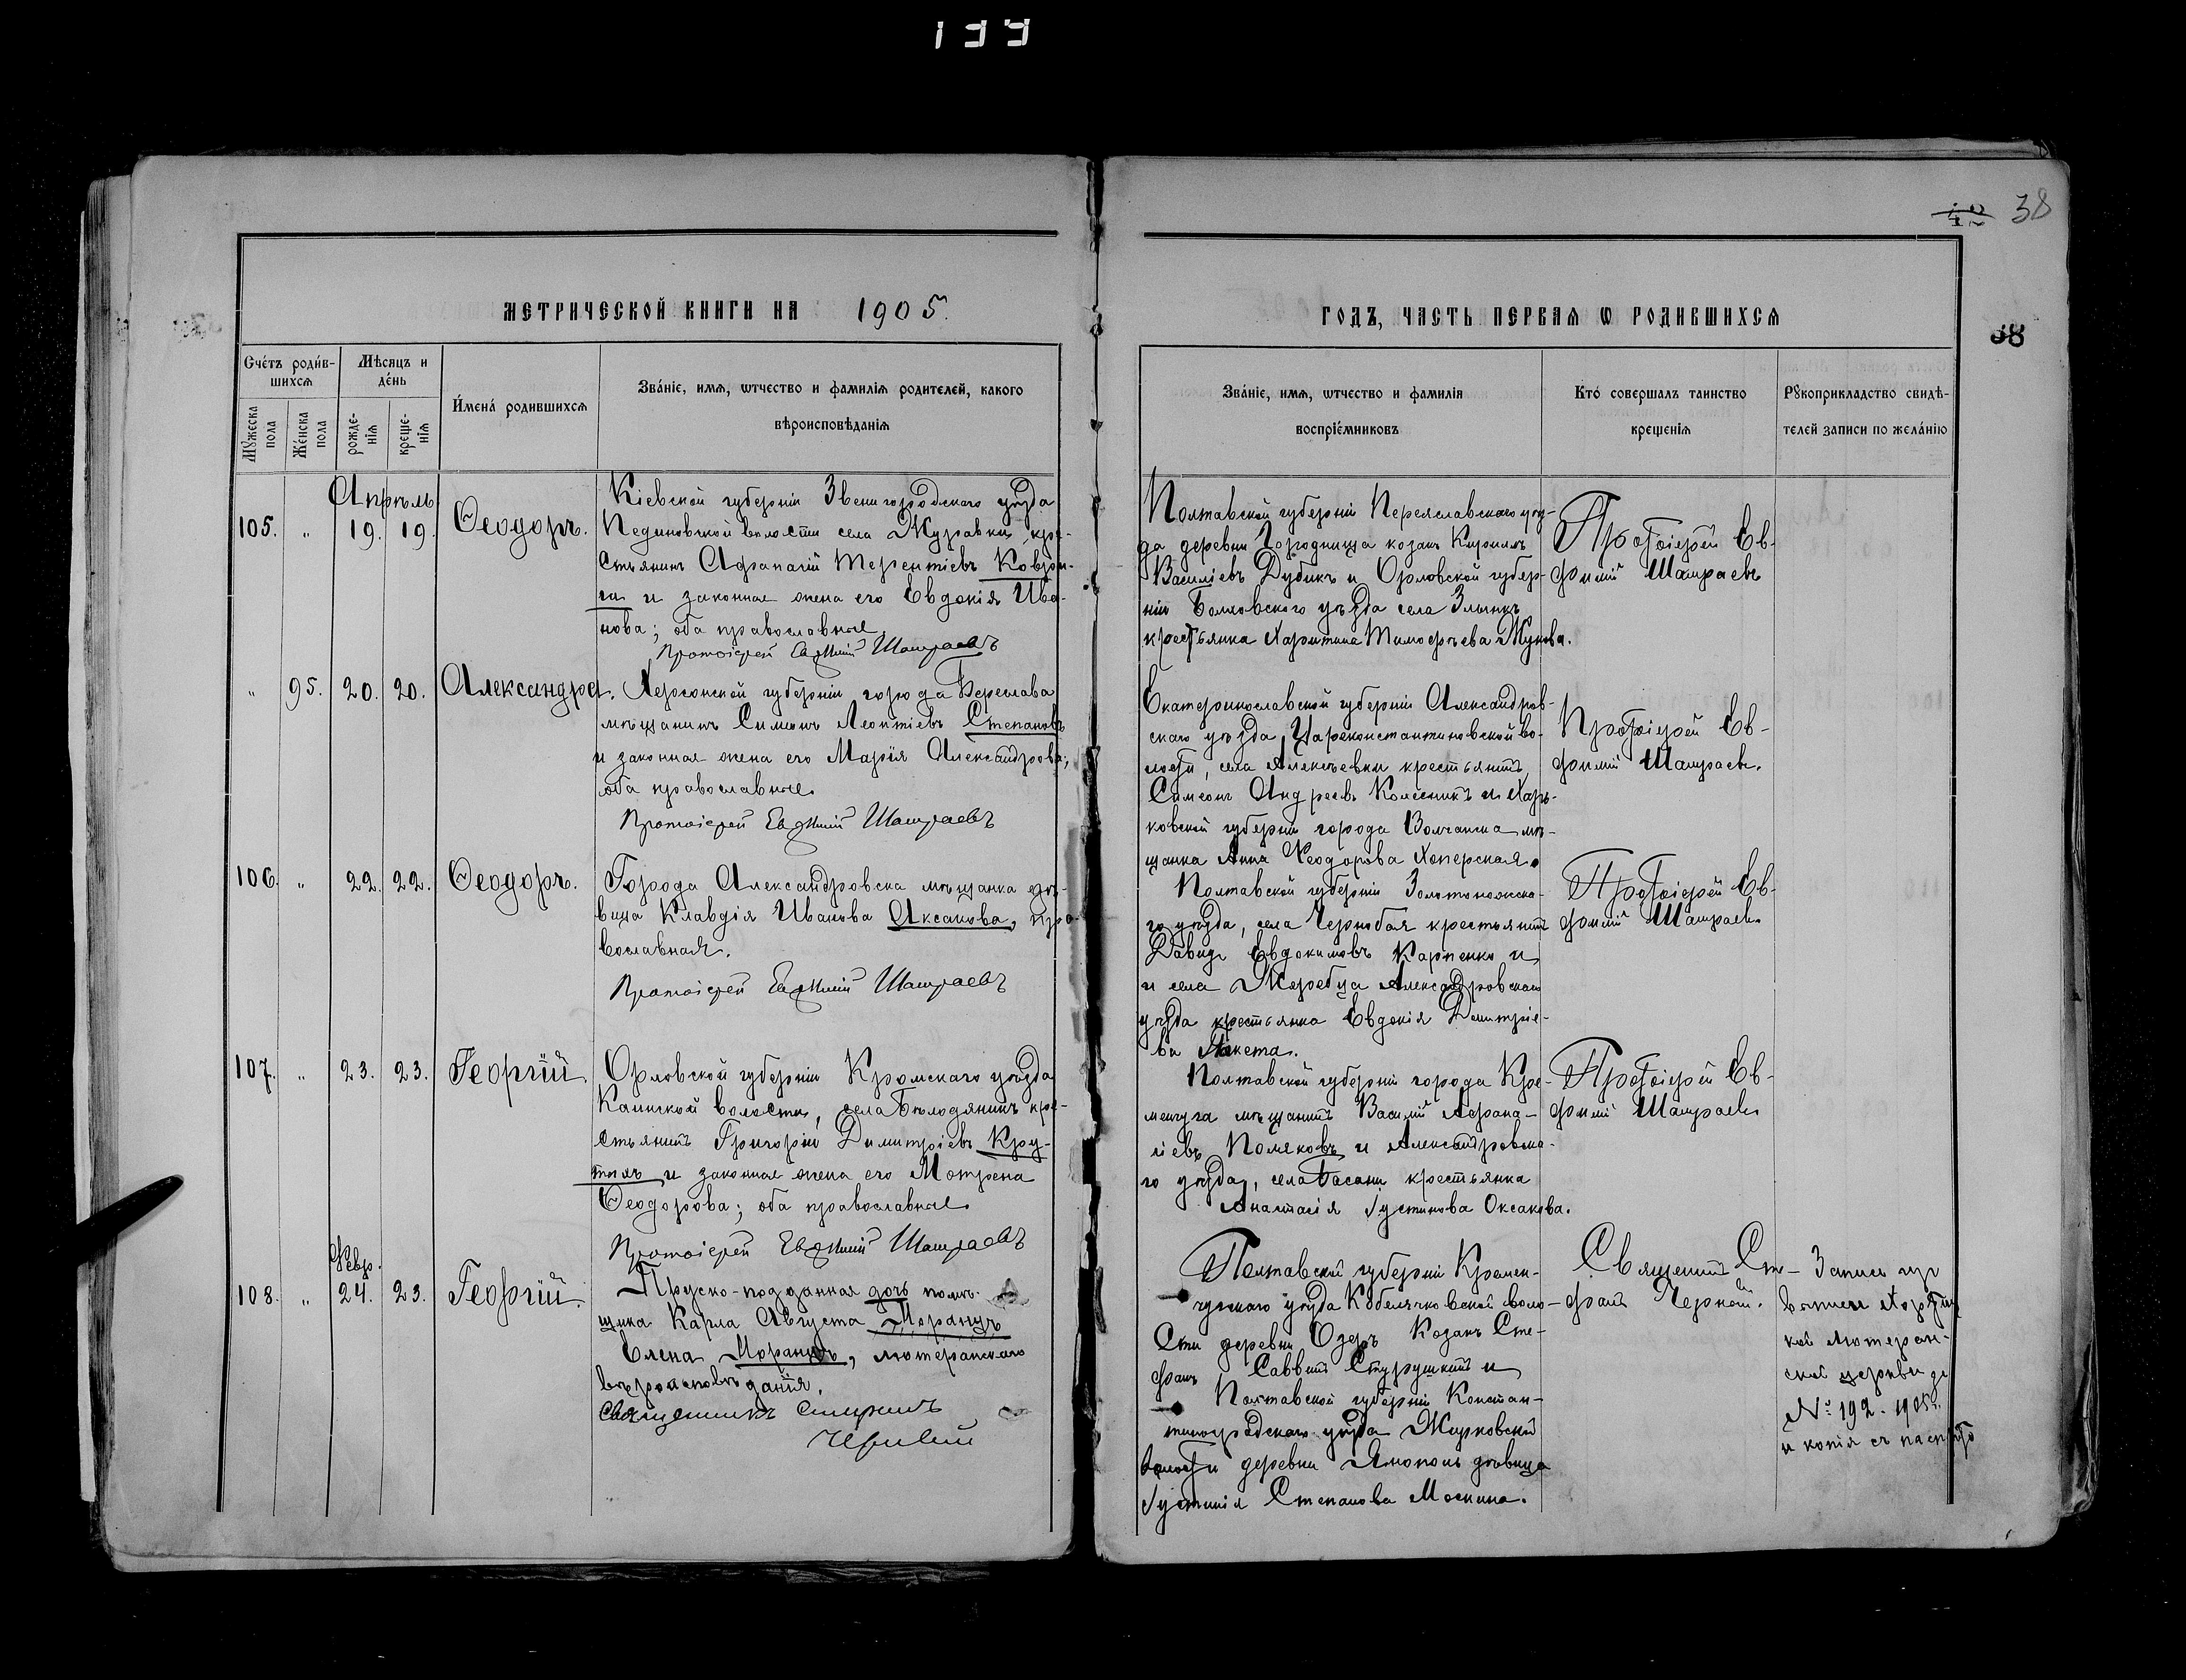 133
38
38
МЕТРИЧЕСКОЙ КНИГИ НА 1905.
ГОДЪ, ЧАСТЬ ПЕРВАЯ Ѡ РОДИВШИХСЯ
Счетъ родив-
шихся
Мѣсяцъ и
день
Мужеска
пола
Женска
пола
рожде-
нія
креще-
нія
Имена родившихся
Званіе, имя, ѡтчество и фамилія родителей, какого
вѣроисповѣданія
Званіе, имя, ѡтчество и фамилія
воспріемниковъ
Кто совершалъ таинство
крещенія
Рукоприкладство свидѣ-
телей записи по желанію
Апрѣль
105. „ 19. 19. Ѳеодоръ.
Кіевской губерніи Звенигородскаго уѣзда
Пединовской волости села Журавки, кре-
стьянинъ Афанасій Терентіевъ Коври-
га и законная жена его Евдокія Ива-
нова; оба православные.
Протоіерей Евѳимій Шамраевъ
Полтавской губерніи Переяславскаго уѣз-
да деревни Городища козакъ Кириллъ
Василіевъ Дубикъ и Орловской губер-
ніи Болховского уѣзда села
крестьянка Харитина Тимофѣева Жукова.
Протоіерей Ев-
фимій Шамраевъ
„ 95. 20. 20. Александра.
Херсонской губерніи города Береслава
мѣщанинъ Симонъ Леонтіевъ Степановъ
и законная жена его Марія Александрова;
оба православные.
Протоіерей Евѳимій Шамраевъ
Екатеринославской губерніи Александров-
скаго уѣзда, Цареконстантиновской во-
лости, села Алексѣевки крестьянинъ
Симеонъ Андреевъ Колесникъ и Харь-
ковской губерніи города Волчанска мѣ-
щанка Анна Ѳеодорова Хоперская.
Протоіерей Ев-
фимій Шамраевъ.
106. „ 22. 22. Ѳеодоръ.
Города Александровска мѣщанка дѣ-
вица Клавдія Иванова Аксакова, пра-
вославная.
Протоіерей Евѳимій Шамраевъ
Полтавской губерніи Золотоношска-
го уѣзда, села Чернобая крестьянинъ
Давидъ Евдокимовъ Карпенко и
и села Жеребца Александровскаго
уѣзда крестьянка Евдокія Димитріе-
ва
Протоіерей Ев-
фимій Шамраевъ
107. „ 23. 23. Георгій.
Орловской губерніи Кромскаго уѣзда
волости, села кре-
стьянинъ Григорій Димитріевъ Кру-
тихъ и законная жена его Мотрона
Ѳеодорова; оба православные.
Протоіерей Евѳимій Шамраевъ
Полтавской губерніи города Кре-
менчуга мѣщанинъ Василій Афана-
сіевъ Поляковъ и Александровска-
го уѣзда, села Басани крестьянка
Анастасія Іустинова Оксакова.
Протоіерей Ев-
фимій Шамраевъ
Февр.
108. „ 24. 23. Георгій.
Прусско-подданная дочь помѣ-
щика Карла Августа Морандъ
Елена Морандъ, лютеранскаго
вѣроисповѣданія.
Священникъ Стефанъ
Чернай
Полтавской губерніи Кремен-
чугскаго уѣзда Кобелячковской воло-
сти деревни Озеръ Козакъ Сте-
фанъ Саввинъ и
Полтавской губерніи Констан-
тиноградскаго уѣзда Жирковской
волости деревни дѣвица
Іустинія Степанова Москина.
Священникъ Сте-
фанъ
Запись изъ
ской лютеран-
ской церкви за
№ 192. 1905 г.
и копія съ